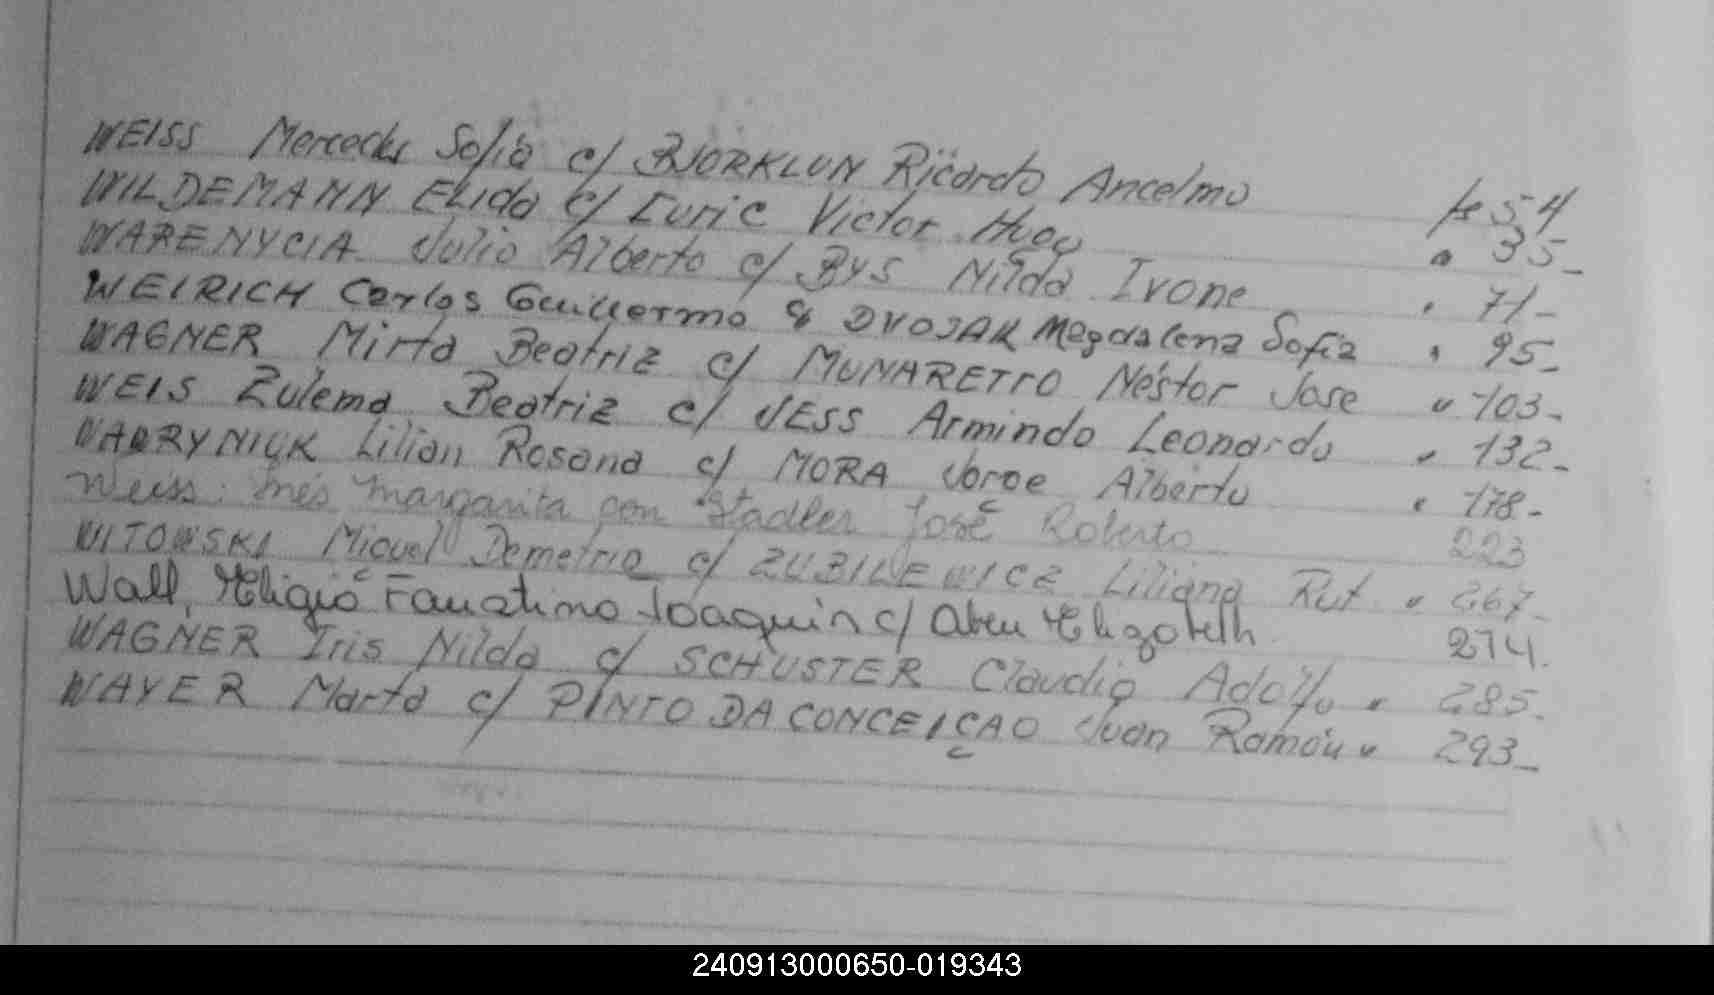 WEISS Mercedes Sofia c/ BJORKLUN Ricardo Ancelmo fs 54
WILDEMANN Elida c/ Euric Victor Hugo " 35-
WARENYCIA Julio Alberto c/ BYS Nilda Ivone " 71-
WEIRICH Carlos Guillermo c/ DVOJAK Magdalena Sofia " 95-
WAGNER Mirta Beatriz c/ MUNARETTO Néstor Jose " 103-
WEIS Zulema Beatriz c/ JESS Armindo Leonardo " 132-
Lilian Rosana c/ MORA Jorge Alberto " 178-
Weiss: Inés Margarita con Stadler José Roberto 223
WITOWSKI Miguel Demetrio c/ ZUBILEWICZ Liliana Rut " 267-
Wall, Eligio Faustino Joaquin c/ Elizabeth 274.
WAGNER Iris Nilda c/ SCHUSTER Claudio Adolfo " 285-
WAYER Marta c/ PINTO DA CONCEIÇAO Juan Ramón " 293-
240913000650-019343